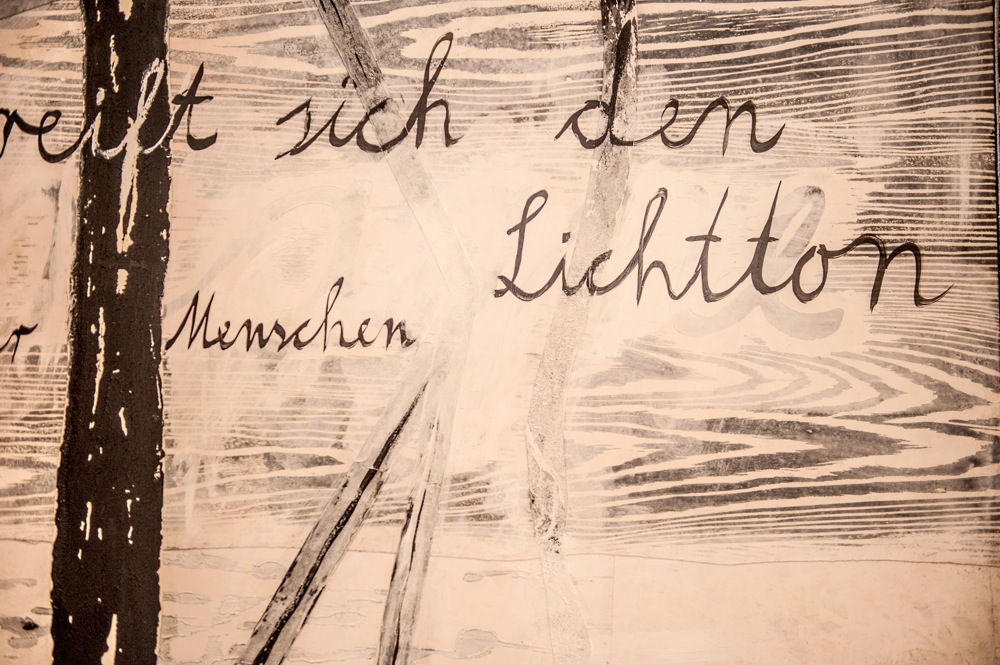 reift sich den
Lichtton
r Menschen